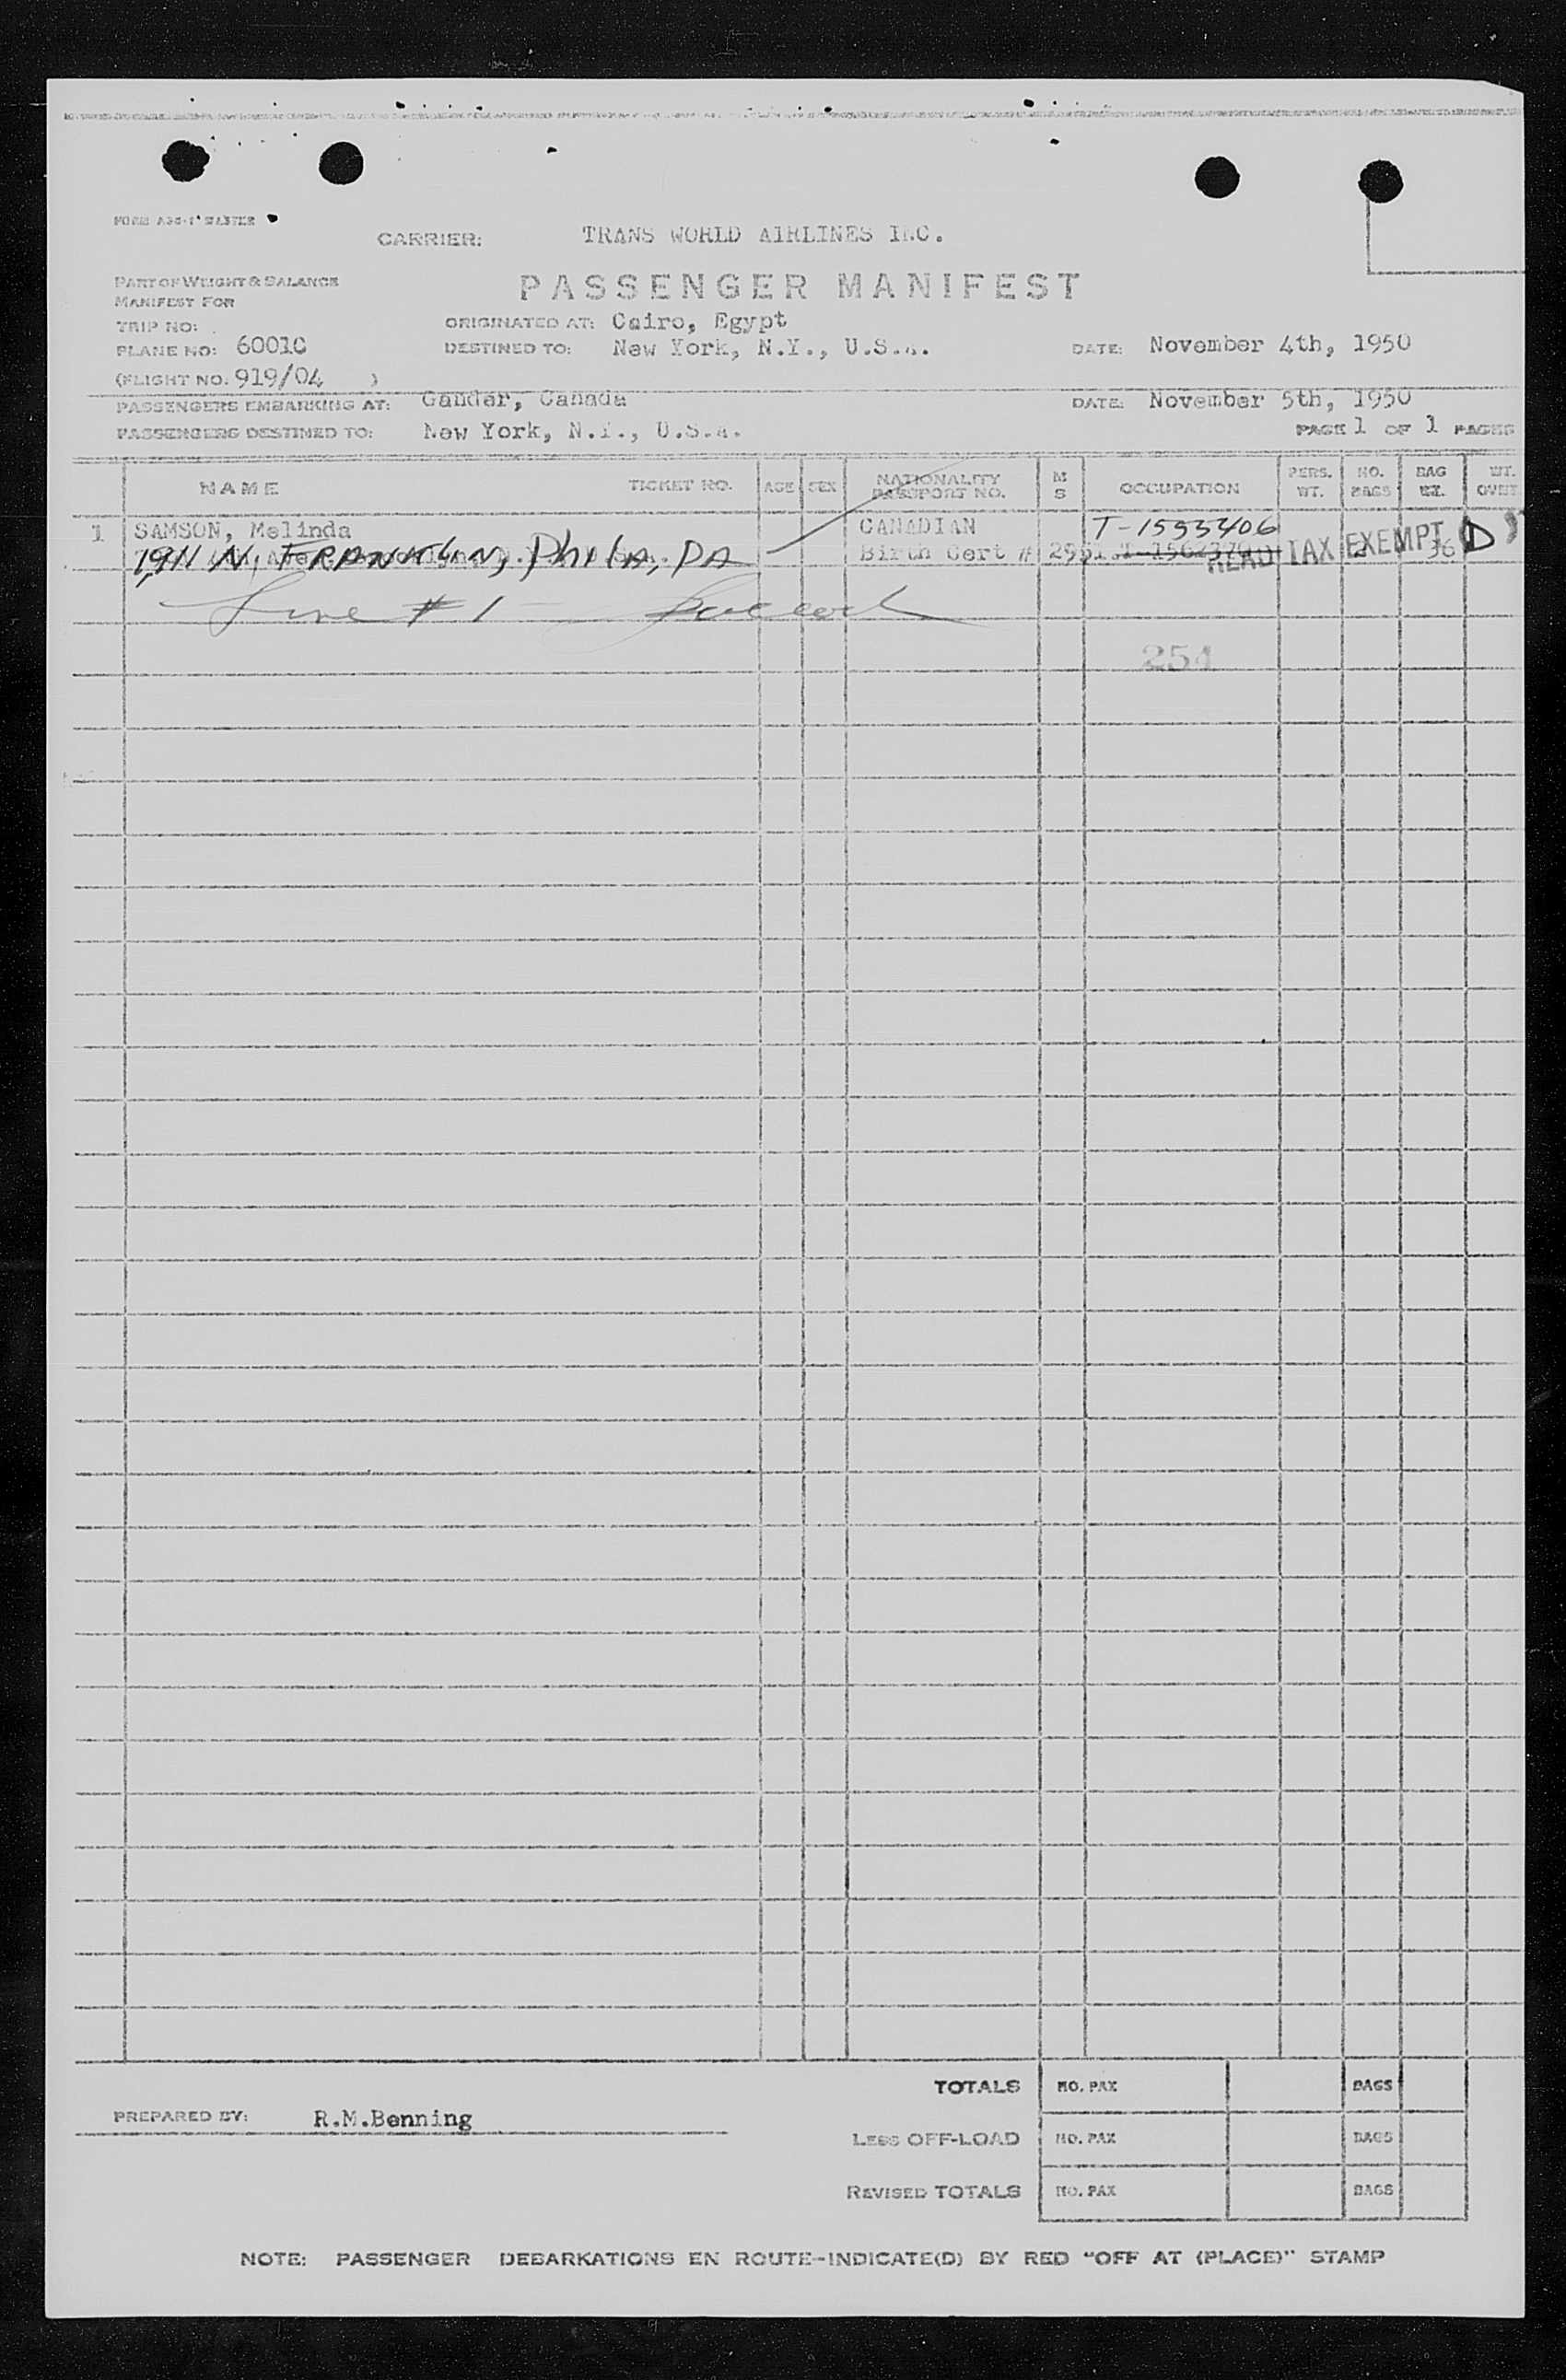 FORM A34-1 MASTER
CARRIER: TRANS WORLD AIRLINES INC.
PART OF WEIGHT & BALANCE
MANIFEST FOR
PASSENGER MANIFEST
TRIP NO:
ORIGINATED AT: Cairo, Egypt
PLANE NO: 6001C
DESTINED TO: New York, N.Y., U.S.A.
DATE: November 4th, 1950
(FLIGHT NO. 919/04 )
PASSENGERS EMBARKING AT: Gander, Canada
DATE: November 5th, 1950
PASSENGERS DESTINED TO: New York, N.Y., U.S.A.
PAGE 1 OF 1 PAGES
NAME TICKET NO. AGE SEX NATIONALITY PASSPORT NO. M S OCCUPATION PERS. WT. NO. BAGS BAG WT. WT. OVER
1 SAMSON, Melinda CANADIAN T-1593406
1911 N. FRANKLIN, Phila, PA Birth Cert # HEAD TAX EXEMPT 36 D
Line # 1
254
TOTALS NO. PAX BAGS
PREPARED BY: R.M.Benning
LESS OFF-LOAD NO. PAX BAGS
REVISED TOTALS NO. PAX BAGS
NOTE: PASSENGER DEBARKATIONS EN ROUTE-INDICATE(D) BY RED "OFF AT (PLACE)" STAMP